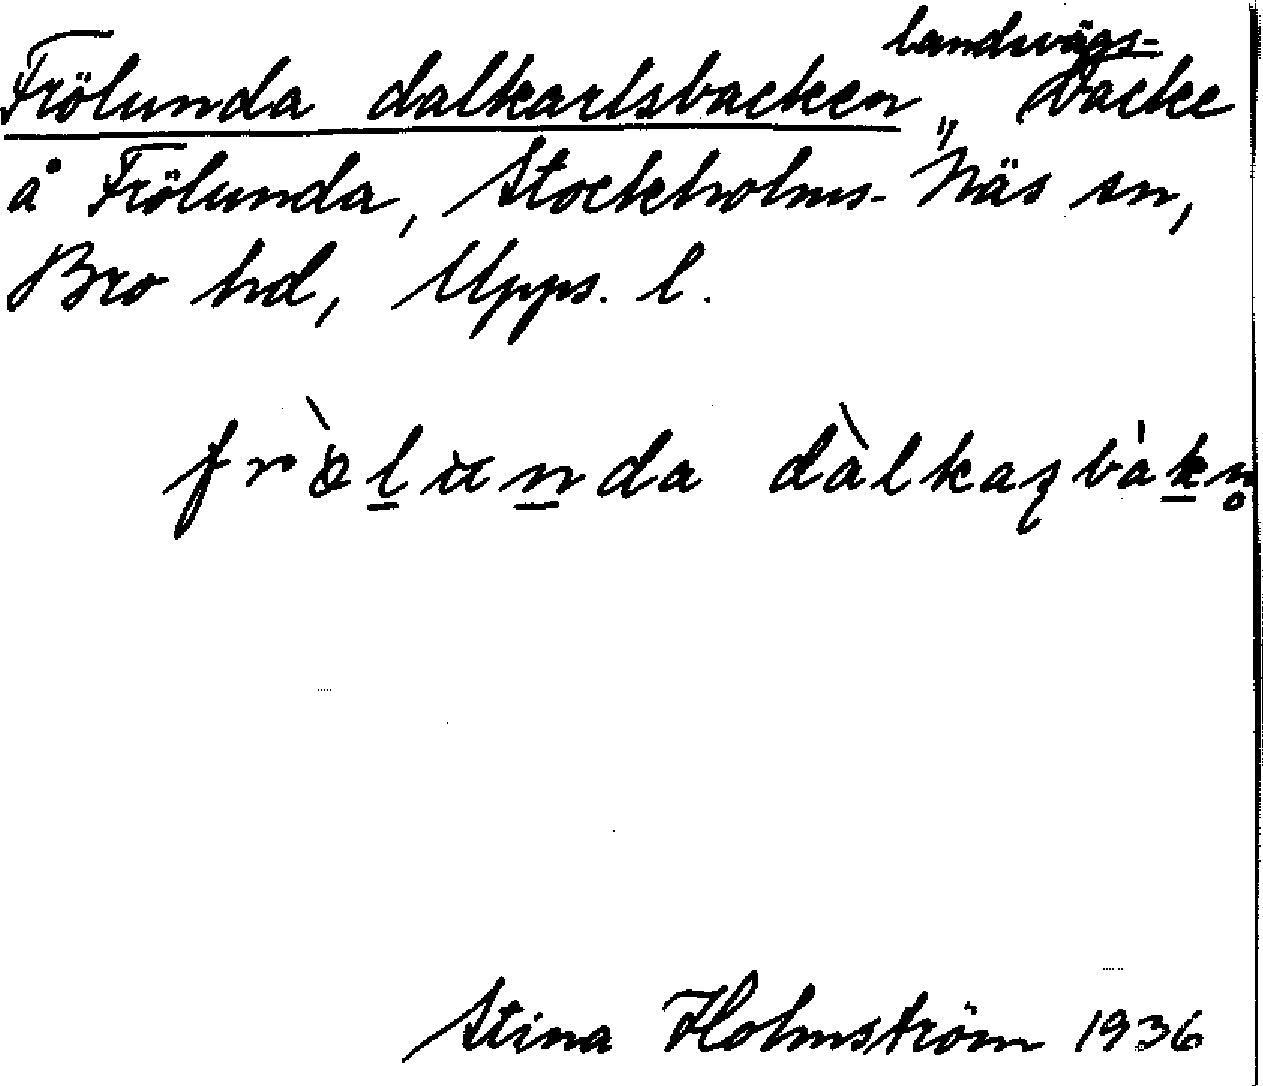 Frölunda dalkarlsbacken, landsvägs-backe
å Frölunda, Stockholms-Näs sn,
Bro hd, Upps. l.
Stina Holmström 1936